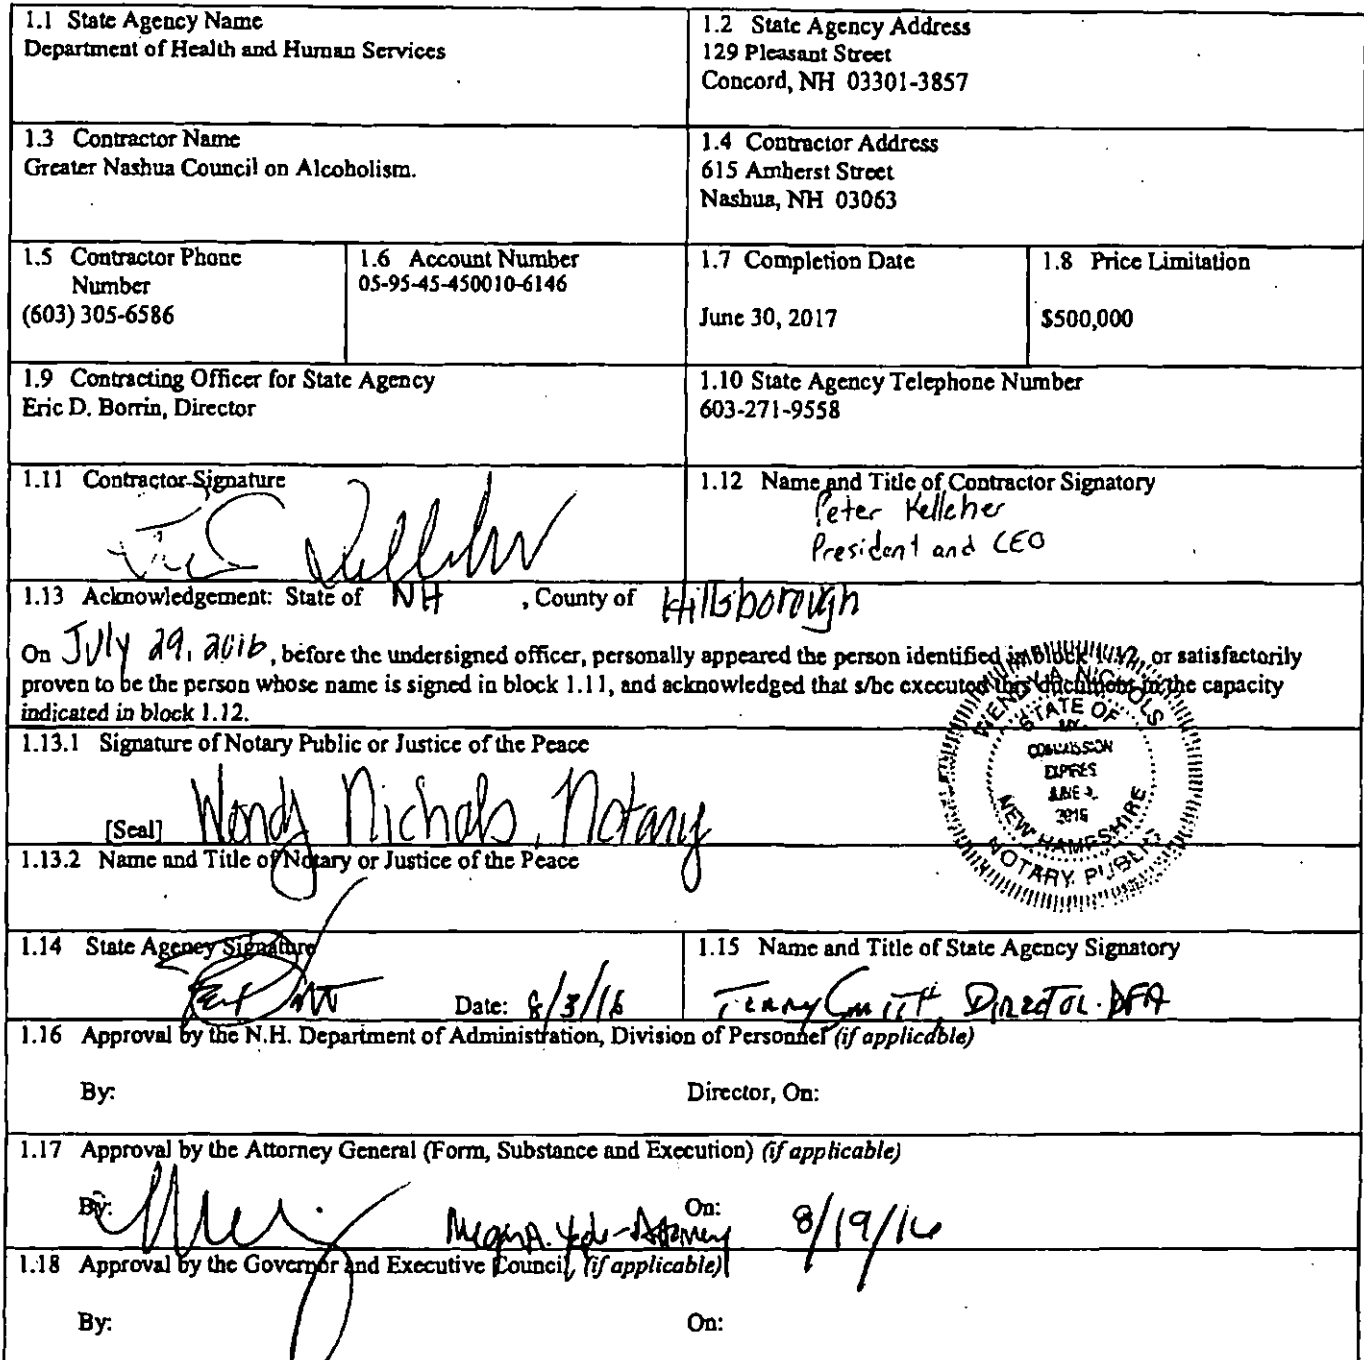 1.1 State Agency Name
Department of Health and Human Services
1.2 State Agency Address
129 Pleasant Street
Concord, NH 03301-3857
1.3 Contractor Name
Greater Nashua Council on Alcoholism.
1.4 Contractor Address
615 Amherst Street
Nashua, NH 03063
1.5 Contractor Phone
Number
(603) 305-6586
1.6 Account Number
05-95-45-450010-6146
1.7 Completion Date
June 30, 2017
1.8 Price Limitation
$500,000
1.9 Contracting Officer for State Agency
Eric D. Borrin, Director
1.10 State Agency Telephone Number
603-271-9558
1.11 Contractor Signature
1.12 Name and Title of Contractor Signatory
Peter Kelleher
President and CEO
1.13 Acknowledgement: State of NH , County of Hillsborough
On July 29, 2016, before the undersigned officer, personally appeared the person identified in block 1.12, or satisfactorily
proven to be the person whose name is signed in block 1.11, and acknowledged that s/he executed this document in the capacity
indicated in block 1.12.
1.13.1 Signature of Notary Public or Justice of the Peace
[Seal] Wendy Nichols, Notary
WENDY A. NICHOLS
STATE OF
MY
COMMISSION
EXPIRES
JUNE
NEW HAMPSHIRE
NOTARY PUBLIC
1.13.2 Name and Title of Notary or Justice of the Peace
1.14 State Agency Signature
Date: 8/3/16
1.15 Name and Title of State Agency Signatory
Director
1.16 Approval by the N.H. Department of Administration, Division of Personnel (if applicable)
By: Director, On:
1.17 Approval by the Attorney General (Form, Substance and Execution) (if applicable)
By: Attorney On: 8/19/16
1.18 Approval by the Governor and Executive Council (if applicable)
By: On: